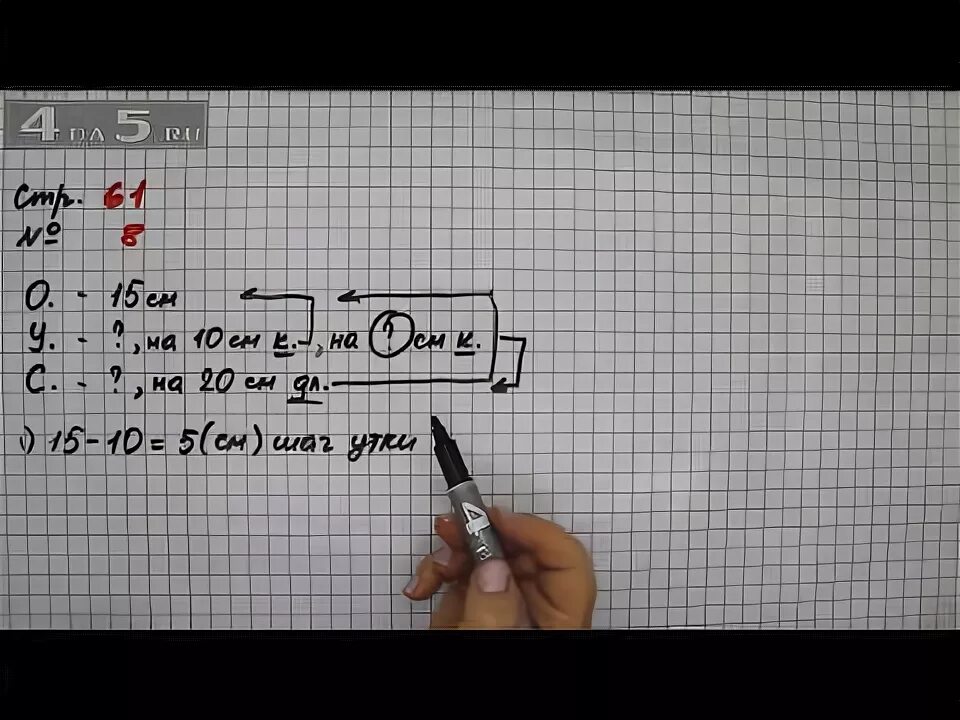 4 НА 5.RU
Стр. 61
№ 8
О. - 15 см
У. - ?, на 10 см к., на ? см к.
С. - ?, на 20 см дл.
1) 15 - 10 = 5 (см) шаг утки